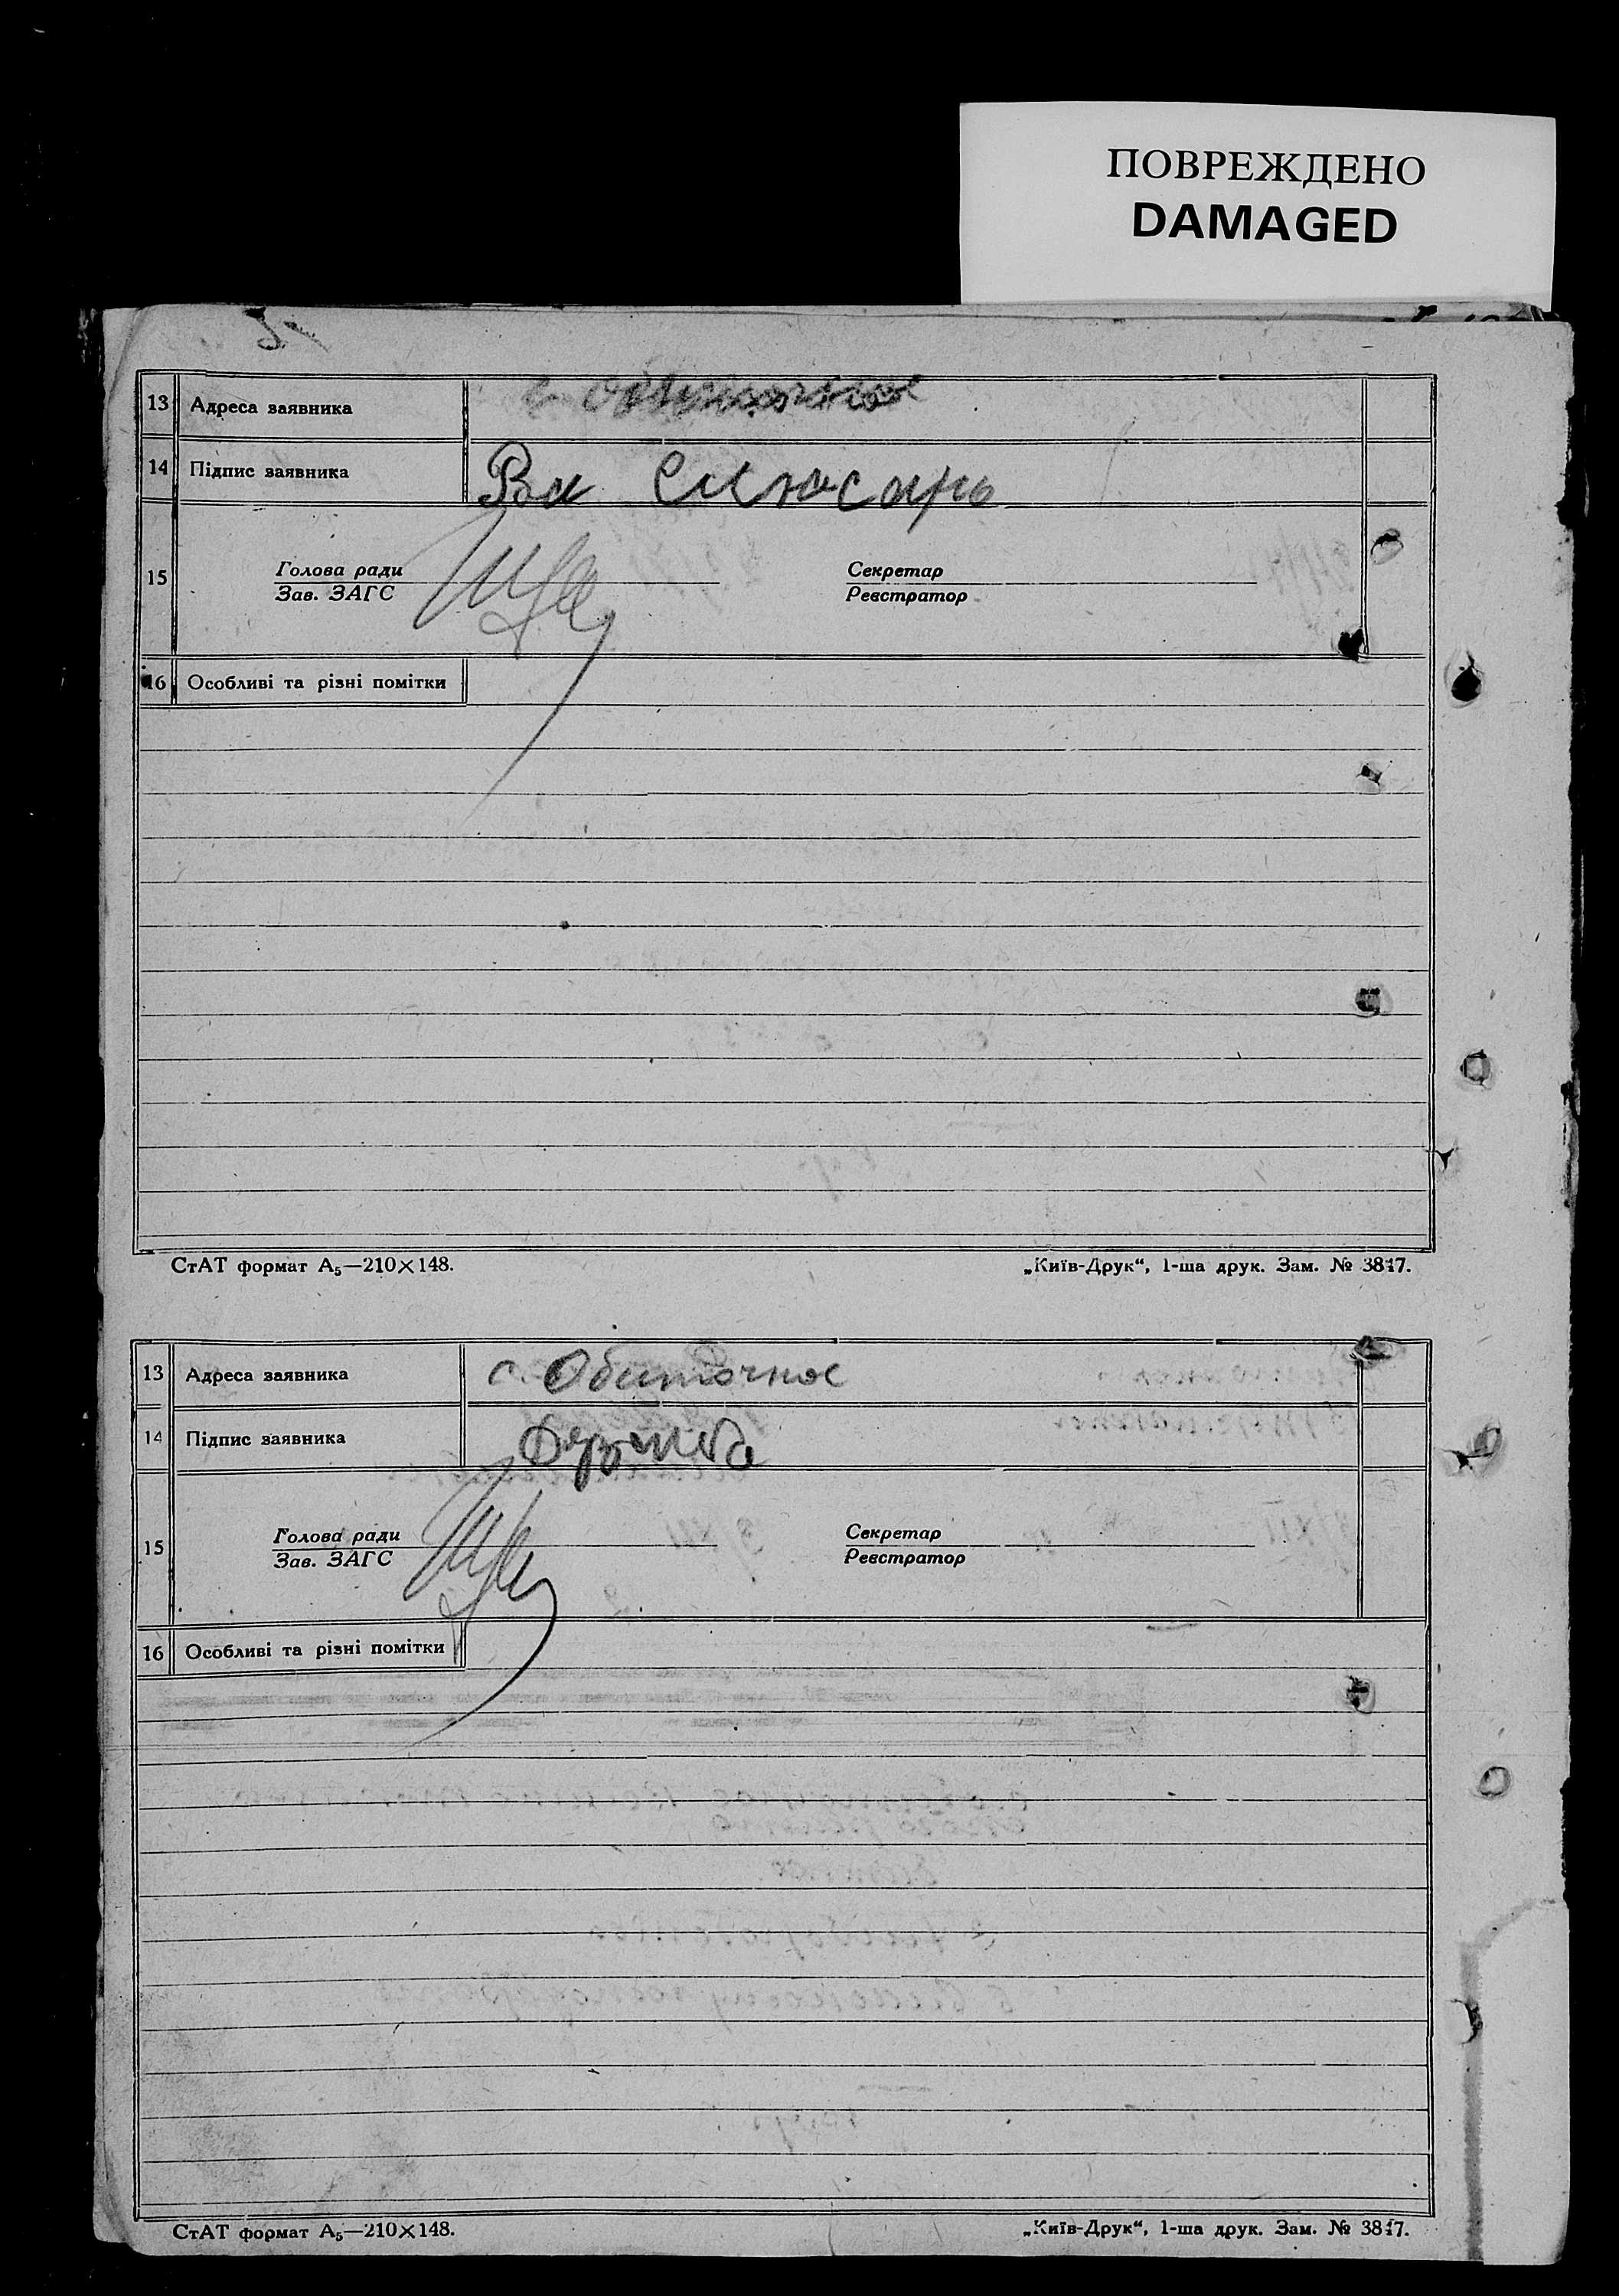 ПОВРЕЖДЕНО
DAMAGED
13 Адреса заявника с Обиточное
14 Підпис заявника За Слюсарь
15 Голова ради Секретар
Зав. ЗАГС Реєстратор
16 Особливі та різні помітки
СтАТ формат А₅—210×148. „Київ-Друк“, 1-ша друк. Зам. № 3847.
13 Адреса заявника с Обиточное
14 Підпис заявника
15 Голова ради Секретар
Зав. ЗАГС Реєстратор
16 Особливі та різні помітки
СтАТ формат А₅—210×148. „Київ-Друк“, 1-ша друк. Зам. № 3847.